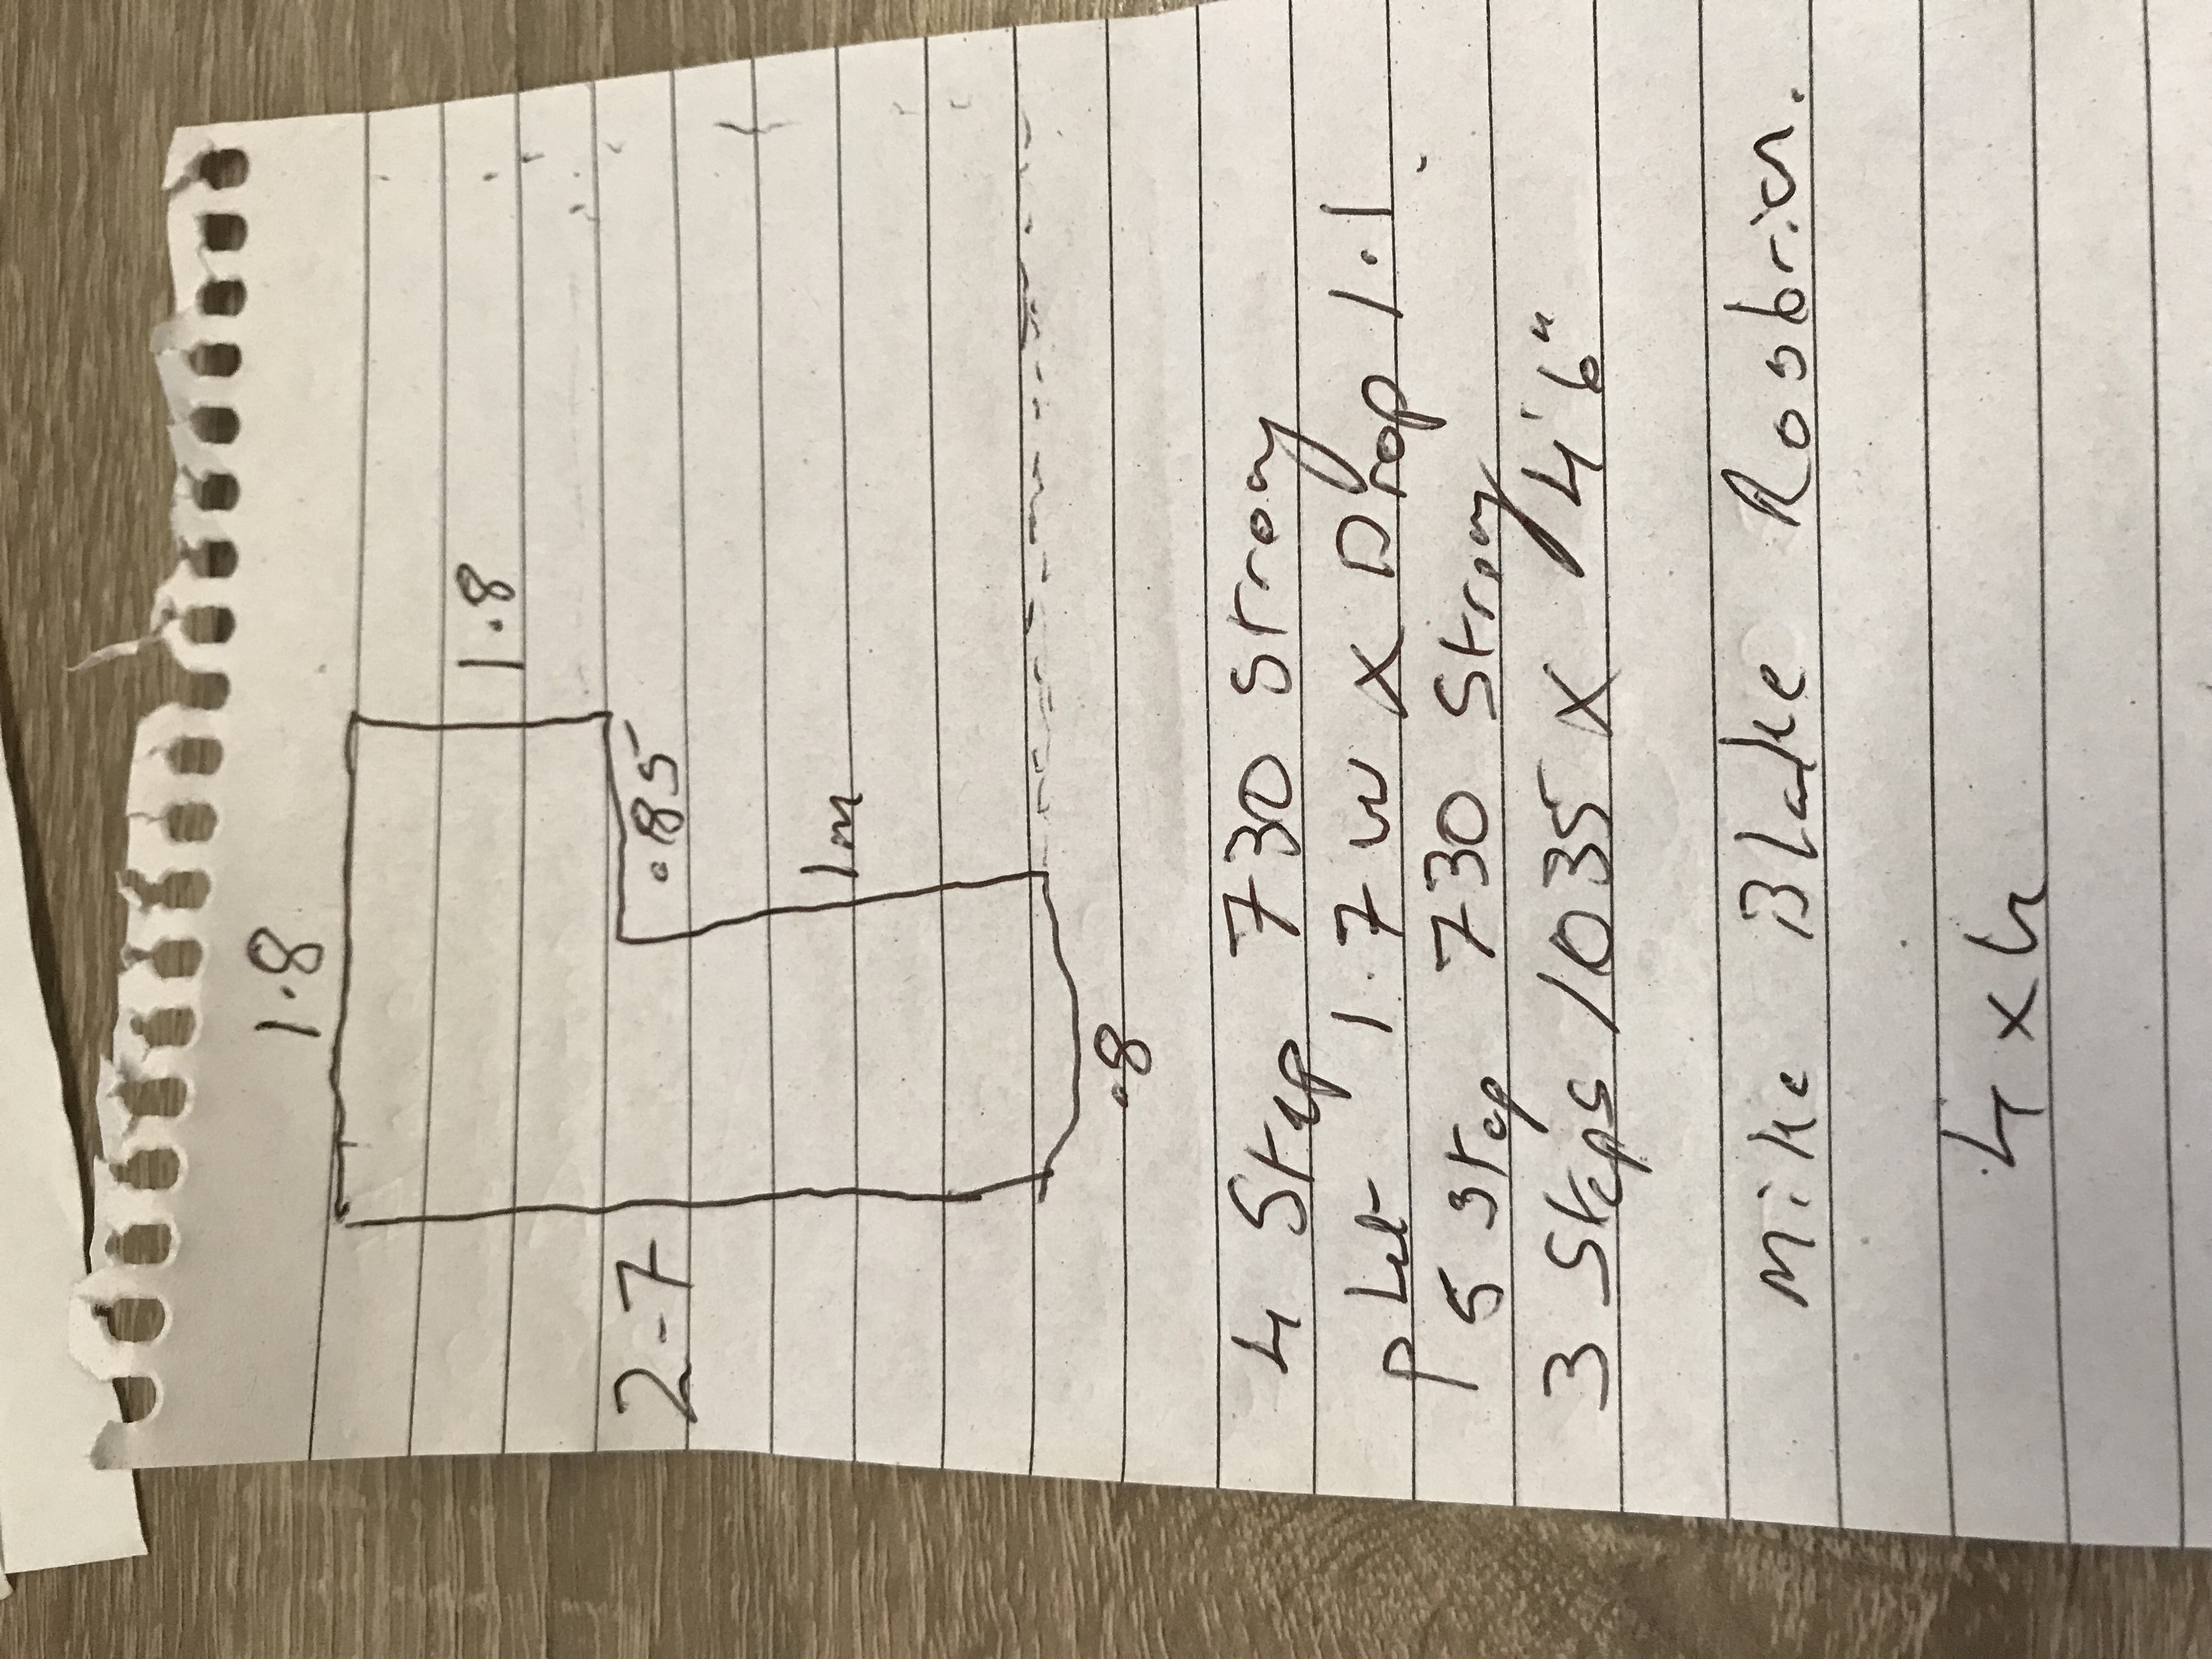 1.8
1.8
.85
2-7
1m
.8
4 Step 730 Strong
PLet 1.7 W X Drop 1.1
5 Step 730 Strong
3 Steps 1035 X 4'6"
Mike Blake Rosbrien.
4 x